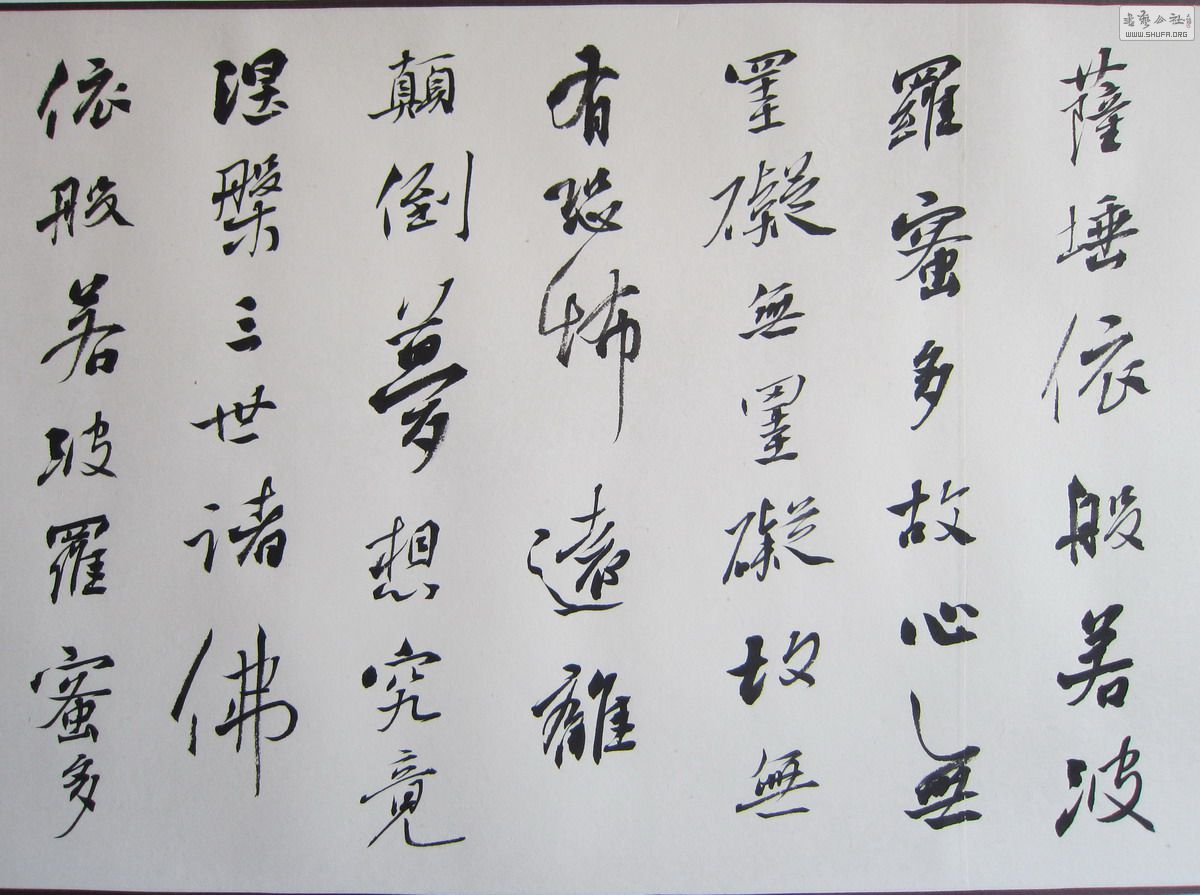 薩埵依般若波
羅蜜多故心無
罣礙無罣礙故無
有恐怖遠離
顛倒夢想究竟
涅槃三世諸佛
依般若波羅蜜多
書藝公社
WWW.SHUFA.ORG